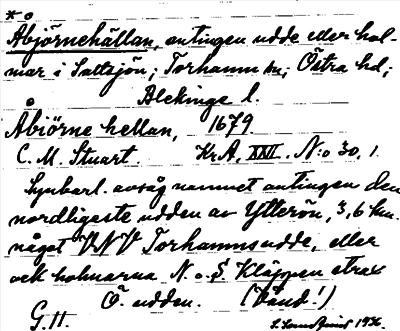 * Åbjörnehällan, antingen udde eller hol-
mar i Saltsjön; Torhamn sn; Östra hd;
Blekinge l.
Åbiörne hellan, 1679
C. M. Stuart. Kr A, XXII. N:o 30, 1.
Synbarl. avsåg namnet antingen den
nordligeste udden av Ytterön, 3,6 km.
något VNV Torhamnsudde, eller
ock holmarna N. o. S. Kläppen strax
Ö. udden. (Vänd!)
G. H. 1936.